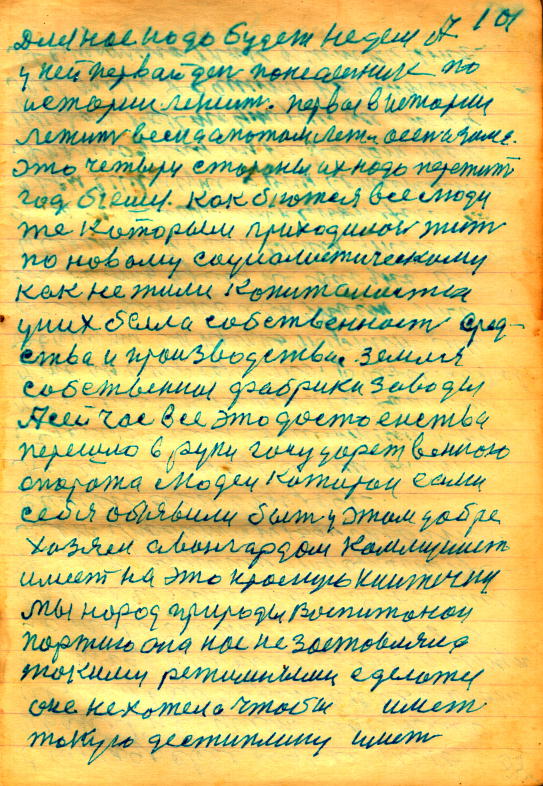 Для нас надо будет недели А 101
у ней первай ден понеделник по
истории лежит. первое в истории
лежит весна а потом лета осен а зима.
Это четыри стораны их надо пережит
год быем. Как бьются все люди
те Которым приходилось жит
по новому социалистическому
как не жили Копиталиста
у них была собственност сред-
ства и производства. Земля
собственние фабрики заводы
А сейчас все это достоенства
перешло в руки государственного
опарата Людей Которои сами
себя обявили быт у этом добре
хозяен авонгардом Коммунист
имеет на это красную книжечку
Мы народ природы воспитоной
партию она нас не заставляла
такими режимными сделать
она не хотела чтобы имет
такую десциплину имет